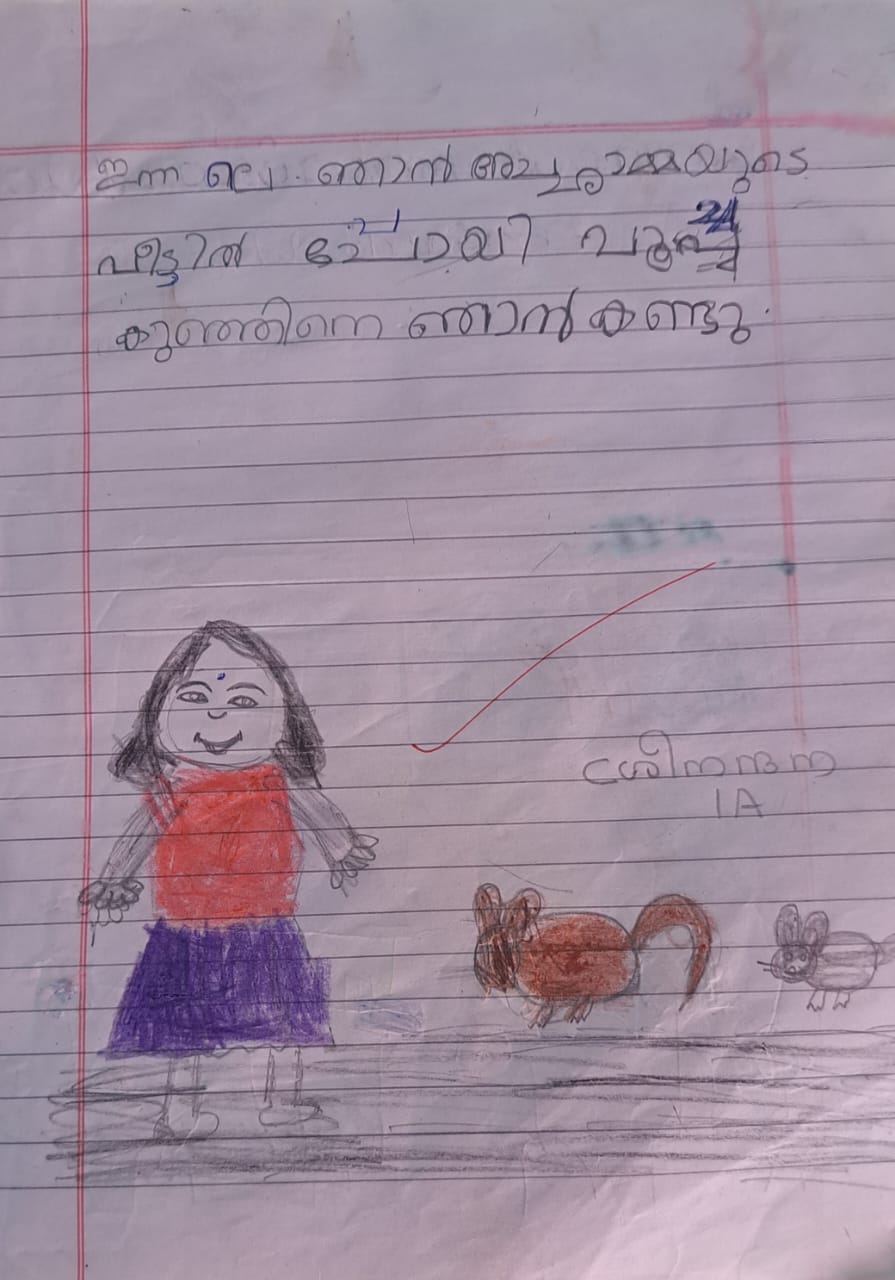 ഇന്നലെ ഞാൻ അച്ചമ്മയുടെ
വീട്ടിൽ പോയി പൂച്ച
കുഞ്ഞിനെ ഞാൻ കണ്ടു.
ശ്രീനന്ദന
1A